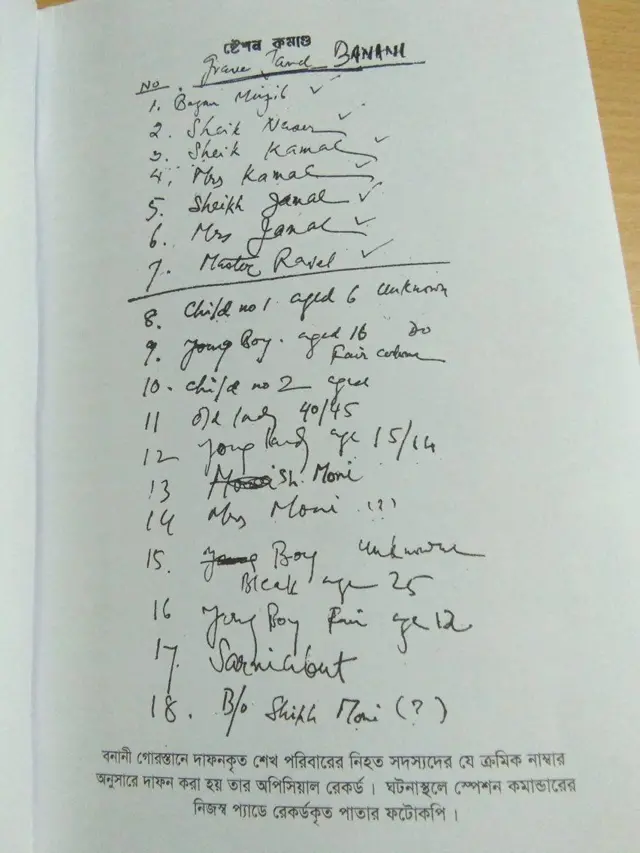 ষ্টেশন কমাণ্ড
Grave Yard BANANI
No
1. Begum Mujib ✓
2. Sheik Naser ✓
3. Sheik Kamal ✓
4. Mrs Kamal ✓
5. Sheikh Jamal ✓
6. Mrs Jamal ✓
7. Master Rasel ✓
8. Child no 1 aged 6 unknown
9. Young Boy. aged 16 Do
Fair
10. child no 2 aged
11 old lady 40/45
12 Young lady age 15/14
13 Sh. Moni
14 Mrs Moni (?)
15. Boy unknown
Black age 25
16 Young Boy Fair age 12
17. Sarniabut
18. B/o Shikh Moni (?)
বনানী গোরস্তানে দাফনকৃত শেখ পরিবারের নিহত সদস্যদের যে ক্রমিক নাম্বার
অনুসারে দাফন করা হয় তার অপিসিয়াল রেকর্ড। ঘটনাস্থলে স্পেশন কমান্ডারের
নিজস্ব প্যাডে রেকর্ডকৃত পাতার ফটোকপি।